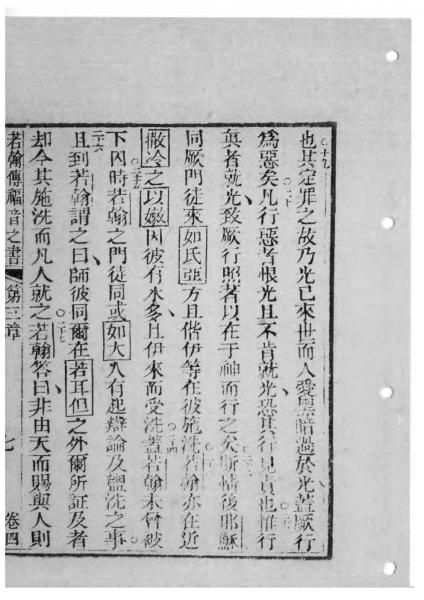 也其定罪之故乃光已來世而人愛黑暗過於光蓋厥行
為惡矣凡行惡者恨光且不肯就光恐其行見責也惟行
真者就光致厥行照著以在于神而行之矣斯情後耶穌
同厥門徒來如氐亞方且偕伊等在彼施洗若翰亦在近
撒冷之以嫩因彼有水多且伊來而受洗蓋若翰未曾被
下囚時若翰之門徒同或如大人有起辯論及盥洗之事
且到若翰謂之曰師彼同爾在若耳但之外爾所証及者
却今其施洗而凡人就之若翰答曰非由天而賜與人則
若翰傳福音之書 第三章 七 卷四